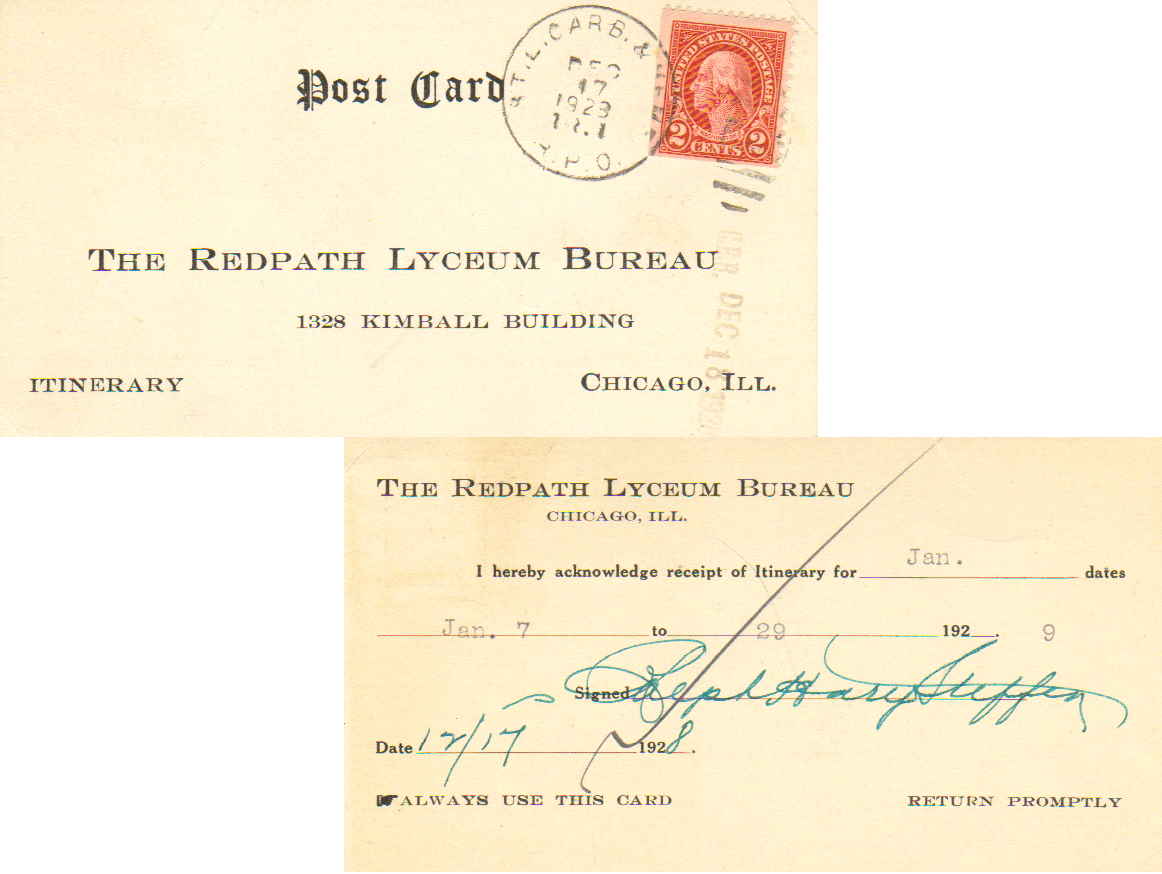 Post Card
T.L. CARB. &
DEC
17
1928
R.P.O.
UNITED STATES POSTAGE
2 CENTS 2
THE REDPATH LYCEUM BUREAU
1328 KIMBALL BUILDING
ITINERARY CHICAGO, ILL.
DEC 18
THE REDPATH LYCEUM BUREAU
CHICAGO, ILL.
I hereby acknowledge receipt of Itinerary for Jan. dates
Jan. 7 to 29 192 . 9
Signed Steffen
Date 12/17 1928.
☛ALWAYS USE THIS CARD RETURN PROMPTLY